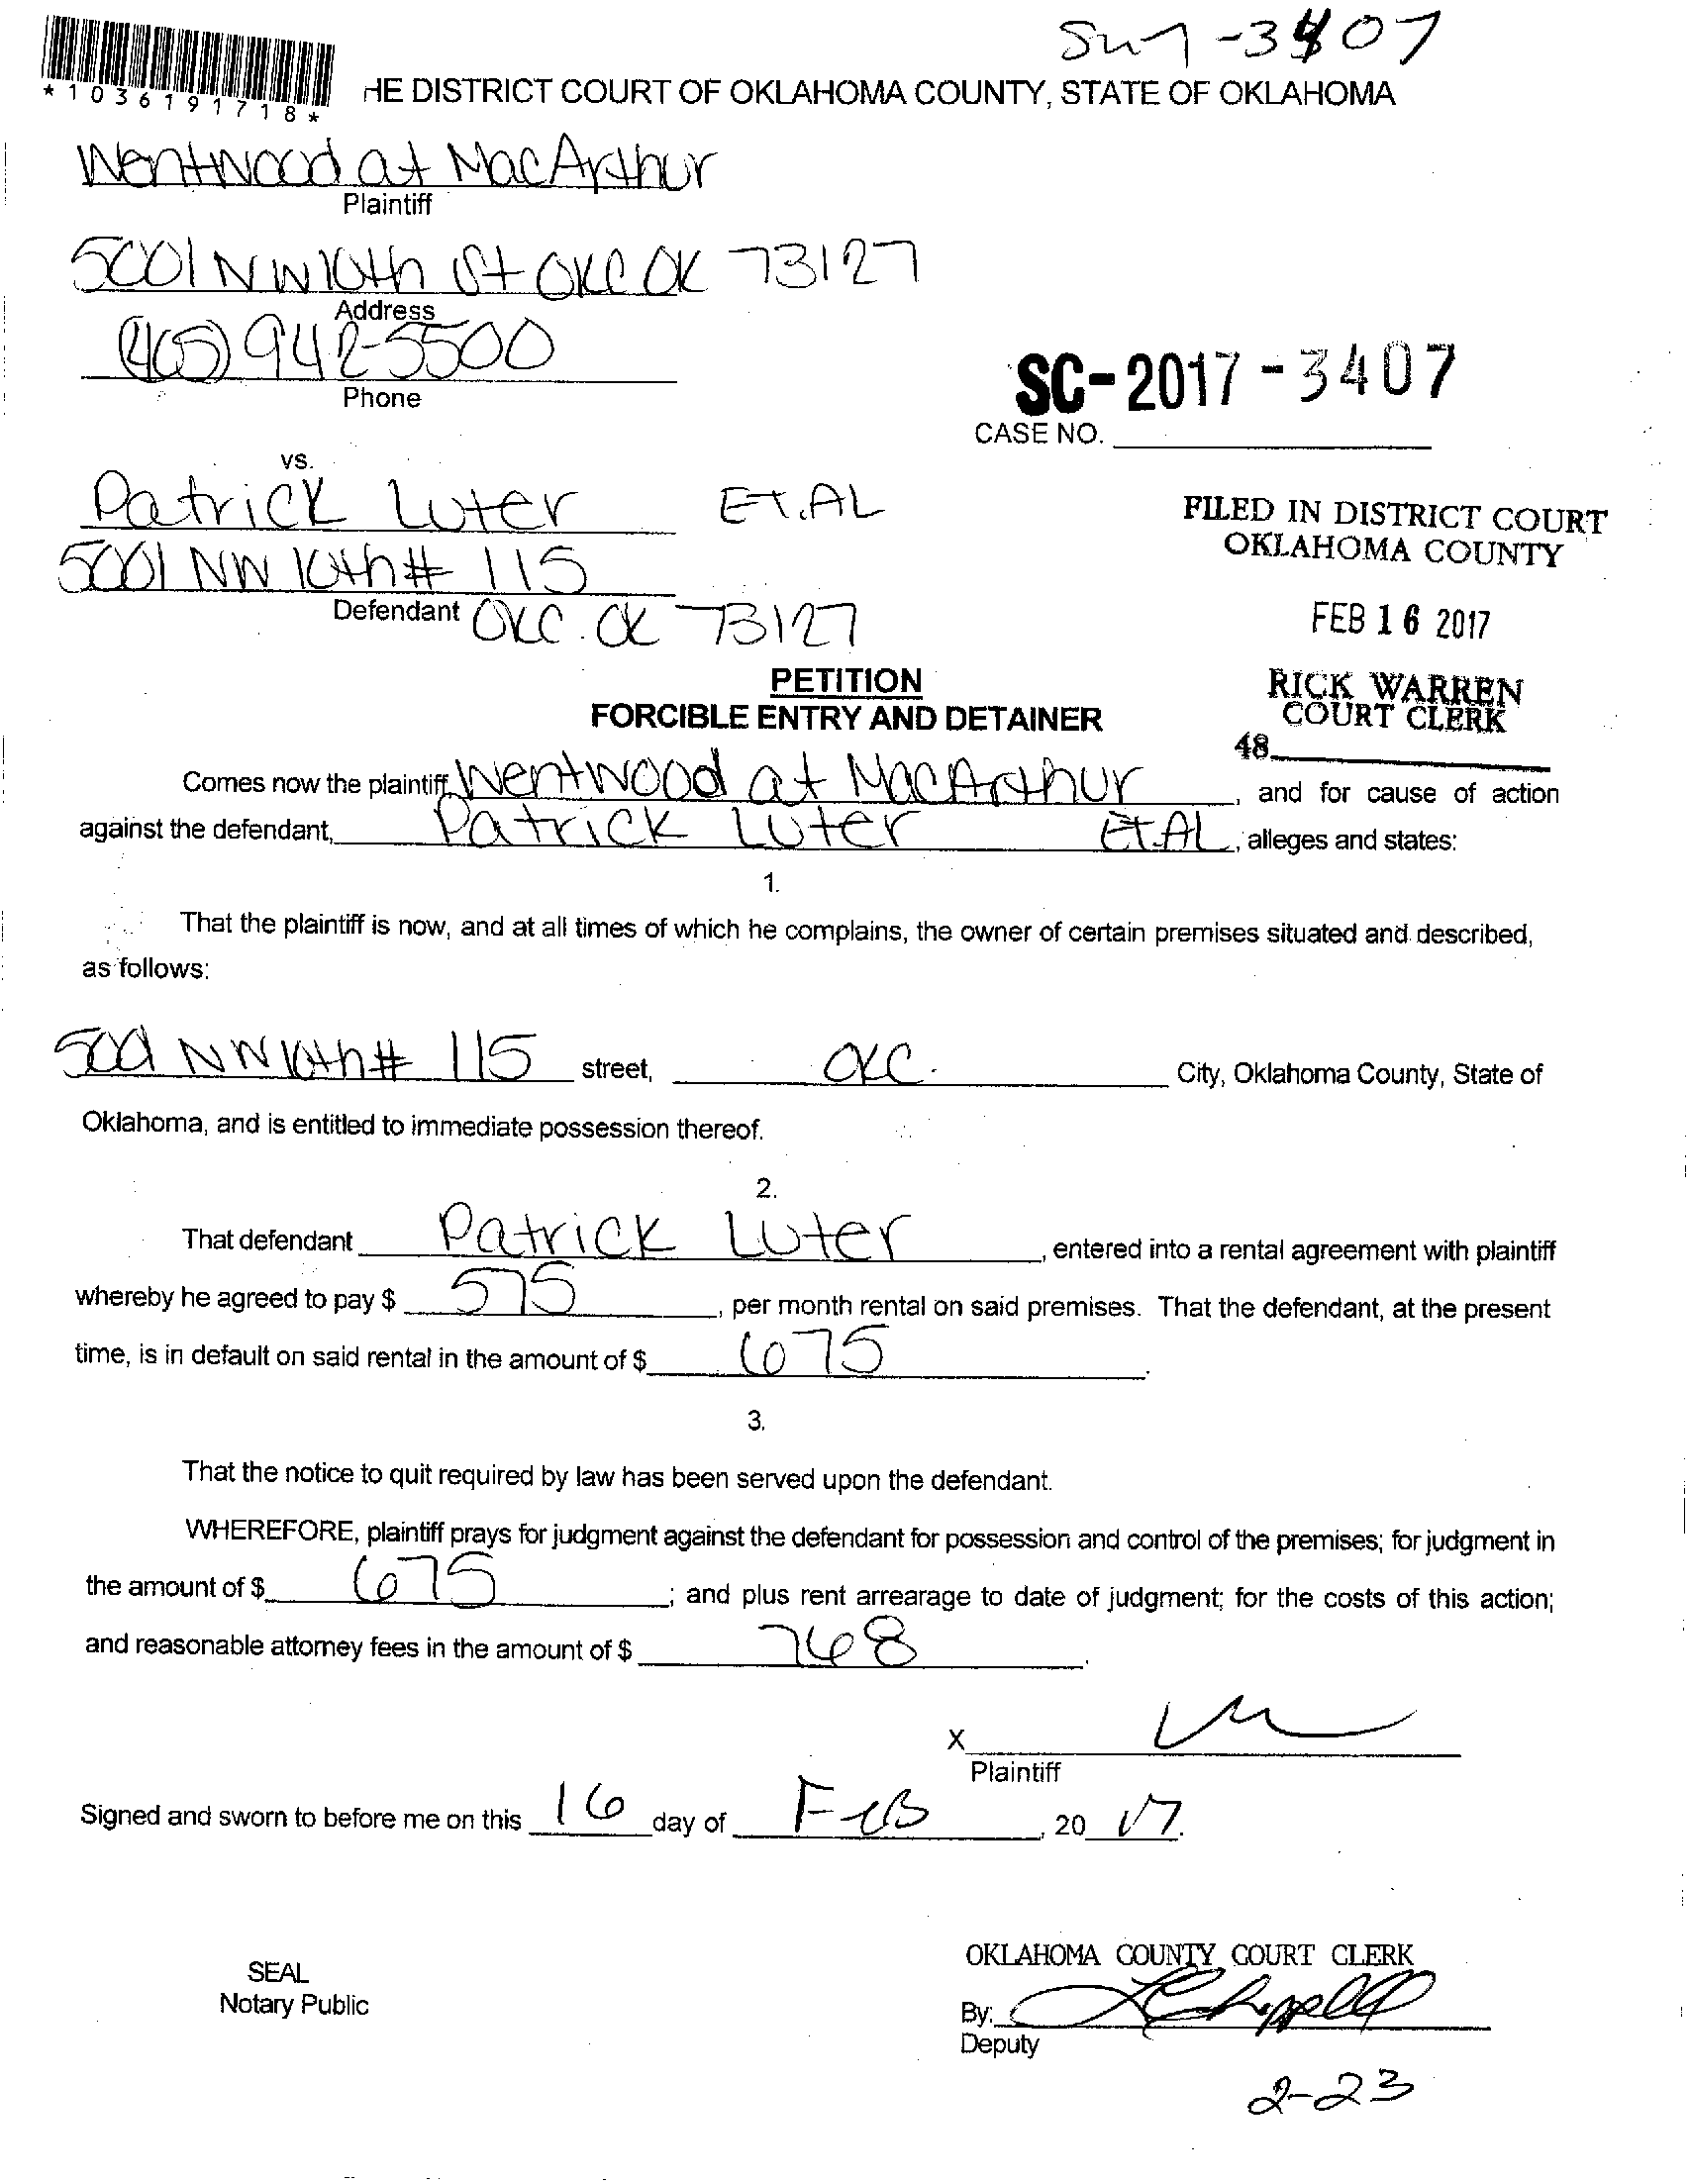 -3407
*1036191718*
HE DISTRICT COURT OF OKLAHOMA COUNTY, STATE OF OKLAHOMA
Wentwood at MacArthur
Plaintiff
5001 NW 10th St OKC OK 73127
Address
(405) 942-5500
Phone
SC-2017-3407
CASE NO.
vs.
Patrick Luter ET.AL
5001 NW 10th # 115
Defendant OKC. OK 73127
FILED IN DISTRICT COURT
OKLAHOMA COUNTY
FEB 16 2017
RICK WARREN
COURT CLERK
48
PETITION
FORCIBLE ENTRY AND DETAINER
Comes now the plaintiff, Wentwood at MacArthur, and for cause of action
against the defendant, Patrick Luter ET.AL, alleges and states:
1.
That the plaintiff is now, and at all times of which he complains, the owner of certain premises situated and described,
as follows:
5001 NW 10th # 115 street, OKC. City, Oklahoma County, State of
Oklahoma, and is entitled to immediate possession thereof.
2.
That defendant Patrick Luter, entered into a rental agreement with plaintiff
whereby he agreed to pay $ 575, per month rental on said premises. That the defendant, at the present
time, is in default on said rental in the amount of $ 675.
3.
That the notice to quit required by law has been served upon the defendant.
WHEREFORE, plaintiff prays for judgment against the defendant for possession and control of the premises; for judgment in
the amount of $ 675; and plus rent arrearage to date of judgment; for the costs of this action;
and reasonable attorney fees in the amount of $ 768.
X
Plaintiff
Signed and sworn to before me on this 16 day of FEB, 20 17.
SEAL
Notary Public
OKLAHOMA COUNTY COURT CLERK
By:
Deputy
2-23